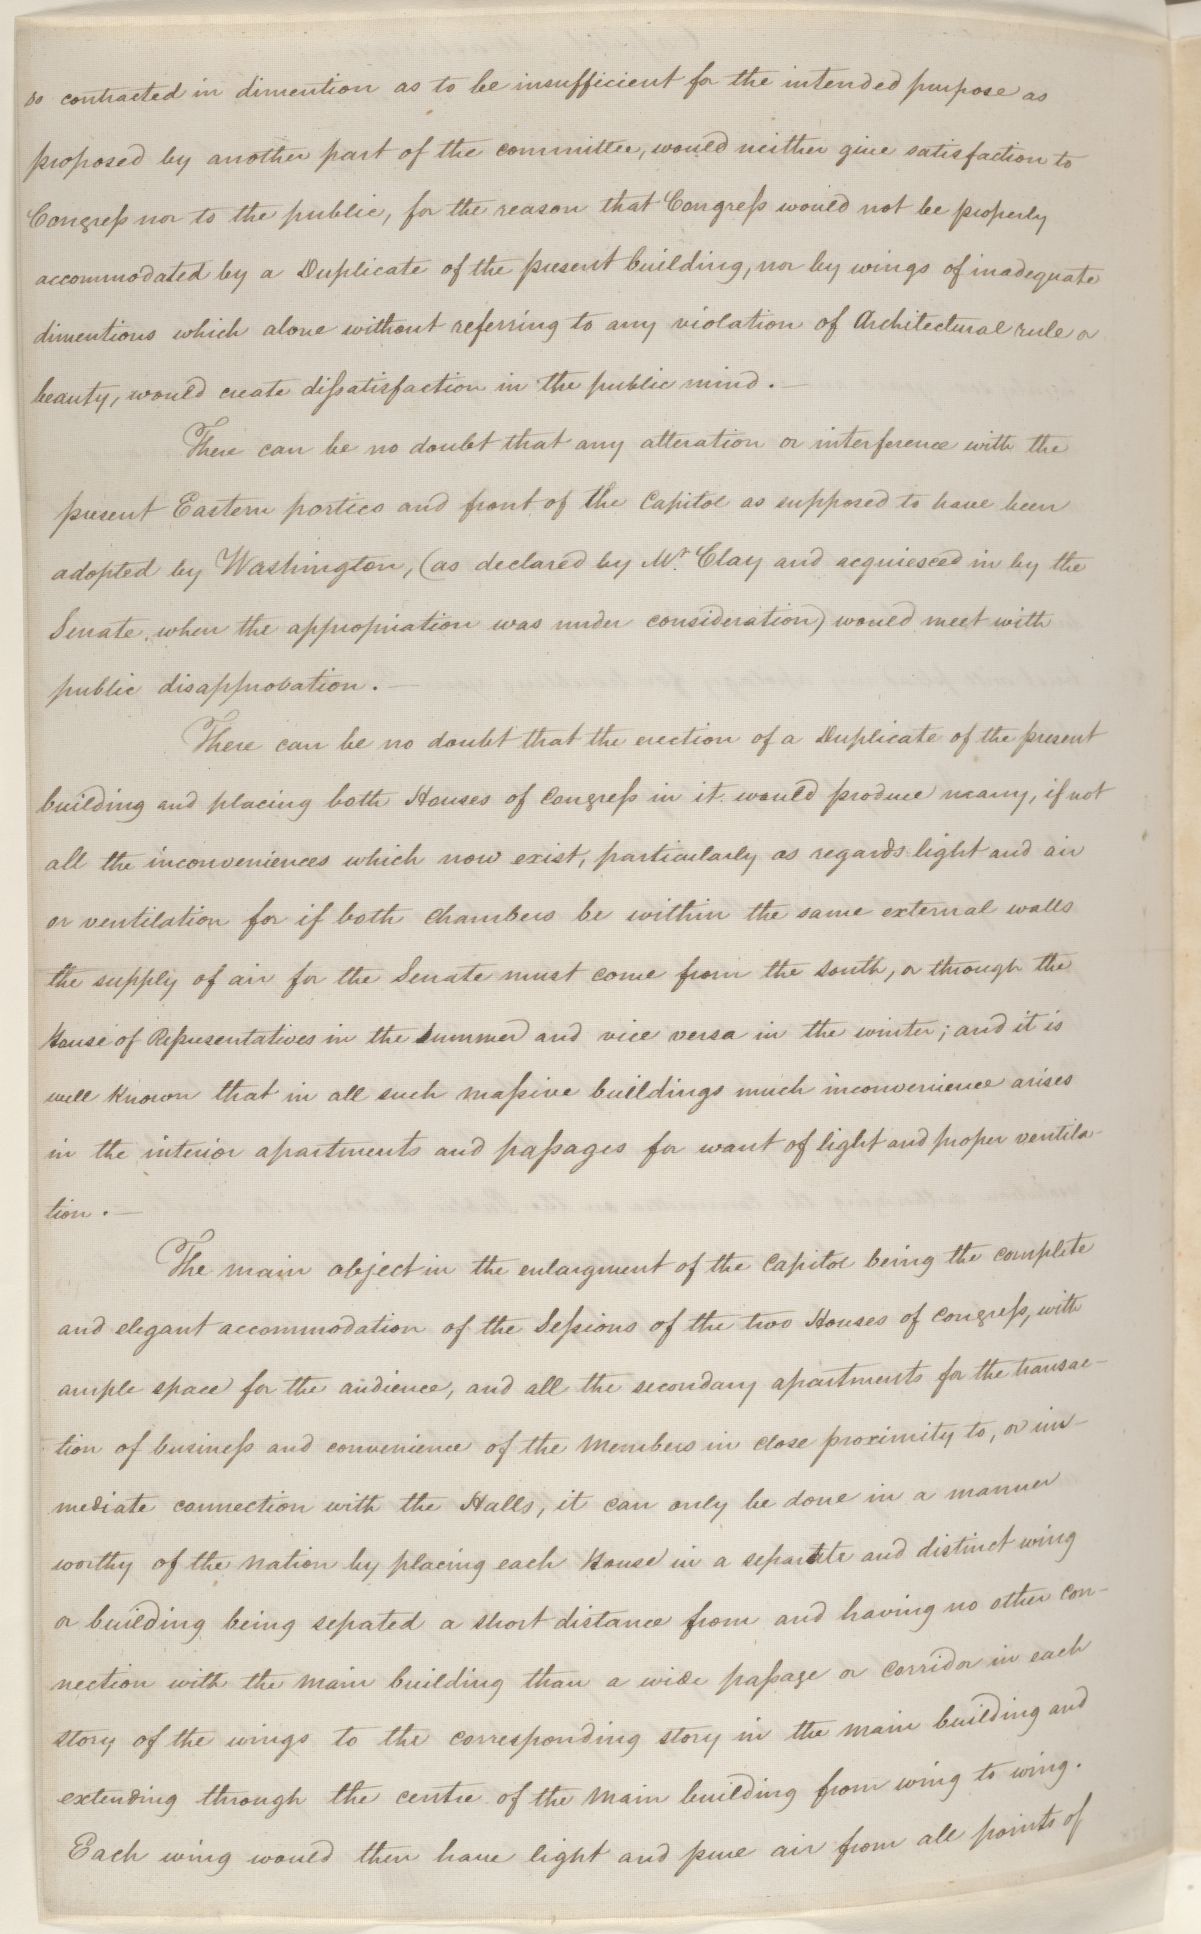 so contracted in dimention as to be insufficient for the intended purpose as
proposed by another part of the committee, would neither give satisfaction to
Congreſs nor to the public, for the reason that Congreſs would not be properly
accommodated by a Duplicate of the present building, nor by wings of inadequate
dimentions which alone without referring to any violation of Architectural rule or
beauty, would create diſsatisfaction in the public mind. —
There can be no doubt that any alteration or interference with the
present Eastern portico and front of the Capitol as supposed to have been
adopted by Washington, (as declared by Mr. Clay and acquiesced in by the
Senate, when the appropriation was under consideration) would meet with
public disapprobation. —
There can be no doubt that the erection of a Duplicate of the present
building and placing both Houses of Congreſs in it would produce many, if not
all the inconveniences which now exist, particularly as regards light and air
or ventilation for if both Chambers be within the same external walls
the supply of air for the Senate must come from the South, or through the
House of Representatives in the Summer and vice versa in the winter; and it is
well known that in all such maſsive buildings much inconvenience arises
in the interior apartments and paſsages for want of light and proper ventila-
tion. —
The main object in the enlargment of the Capitol being the complete
and elegant accommodation of the Seſsions of the two Houses of Congreſs, with
ample space for the audience, and all the secondary apartments for the transac-
tion of busineſs and convenience of the Members in close proximity to, or im-
mediate connection with the Halls, it can only be done in a manner
worthy of the nation by placing each House in a separate and distinct wing
or building being sepated a short distance from and having no other con-
nection with the main building than a wide paſsage or corridor in each
story of the wings to the corresponding story in the main building and
extending through the centre of the main building from wing to wing.
Each wing would then have light and pure air from all points of